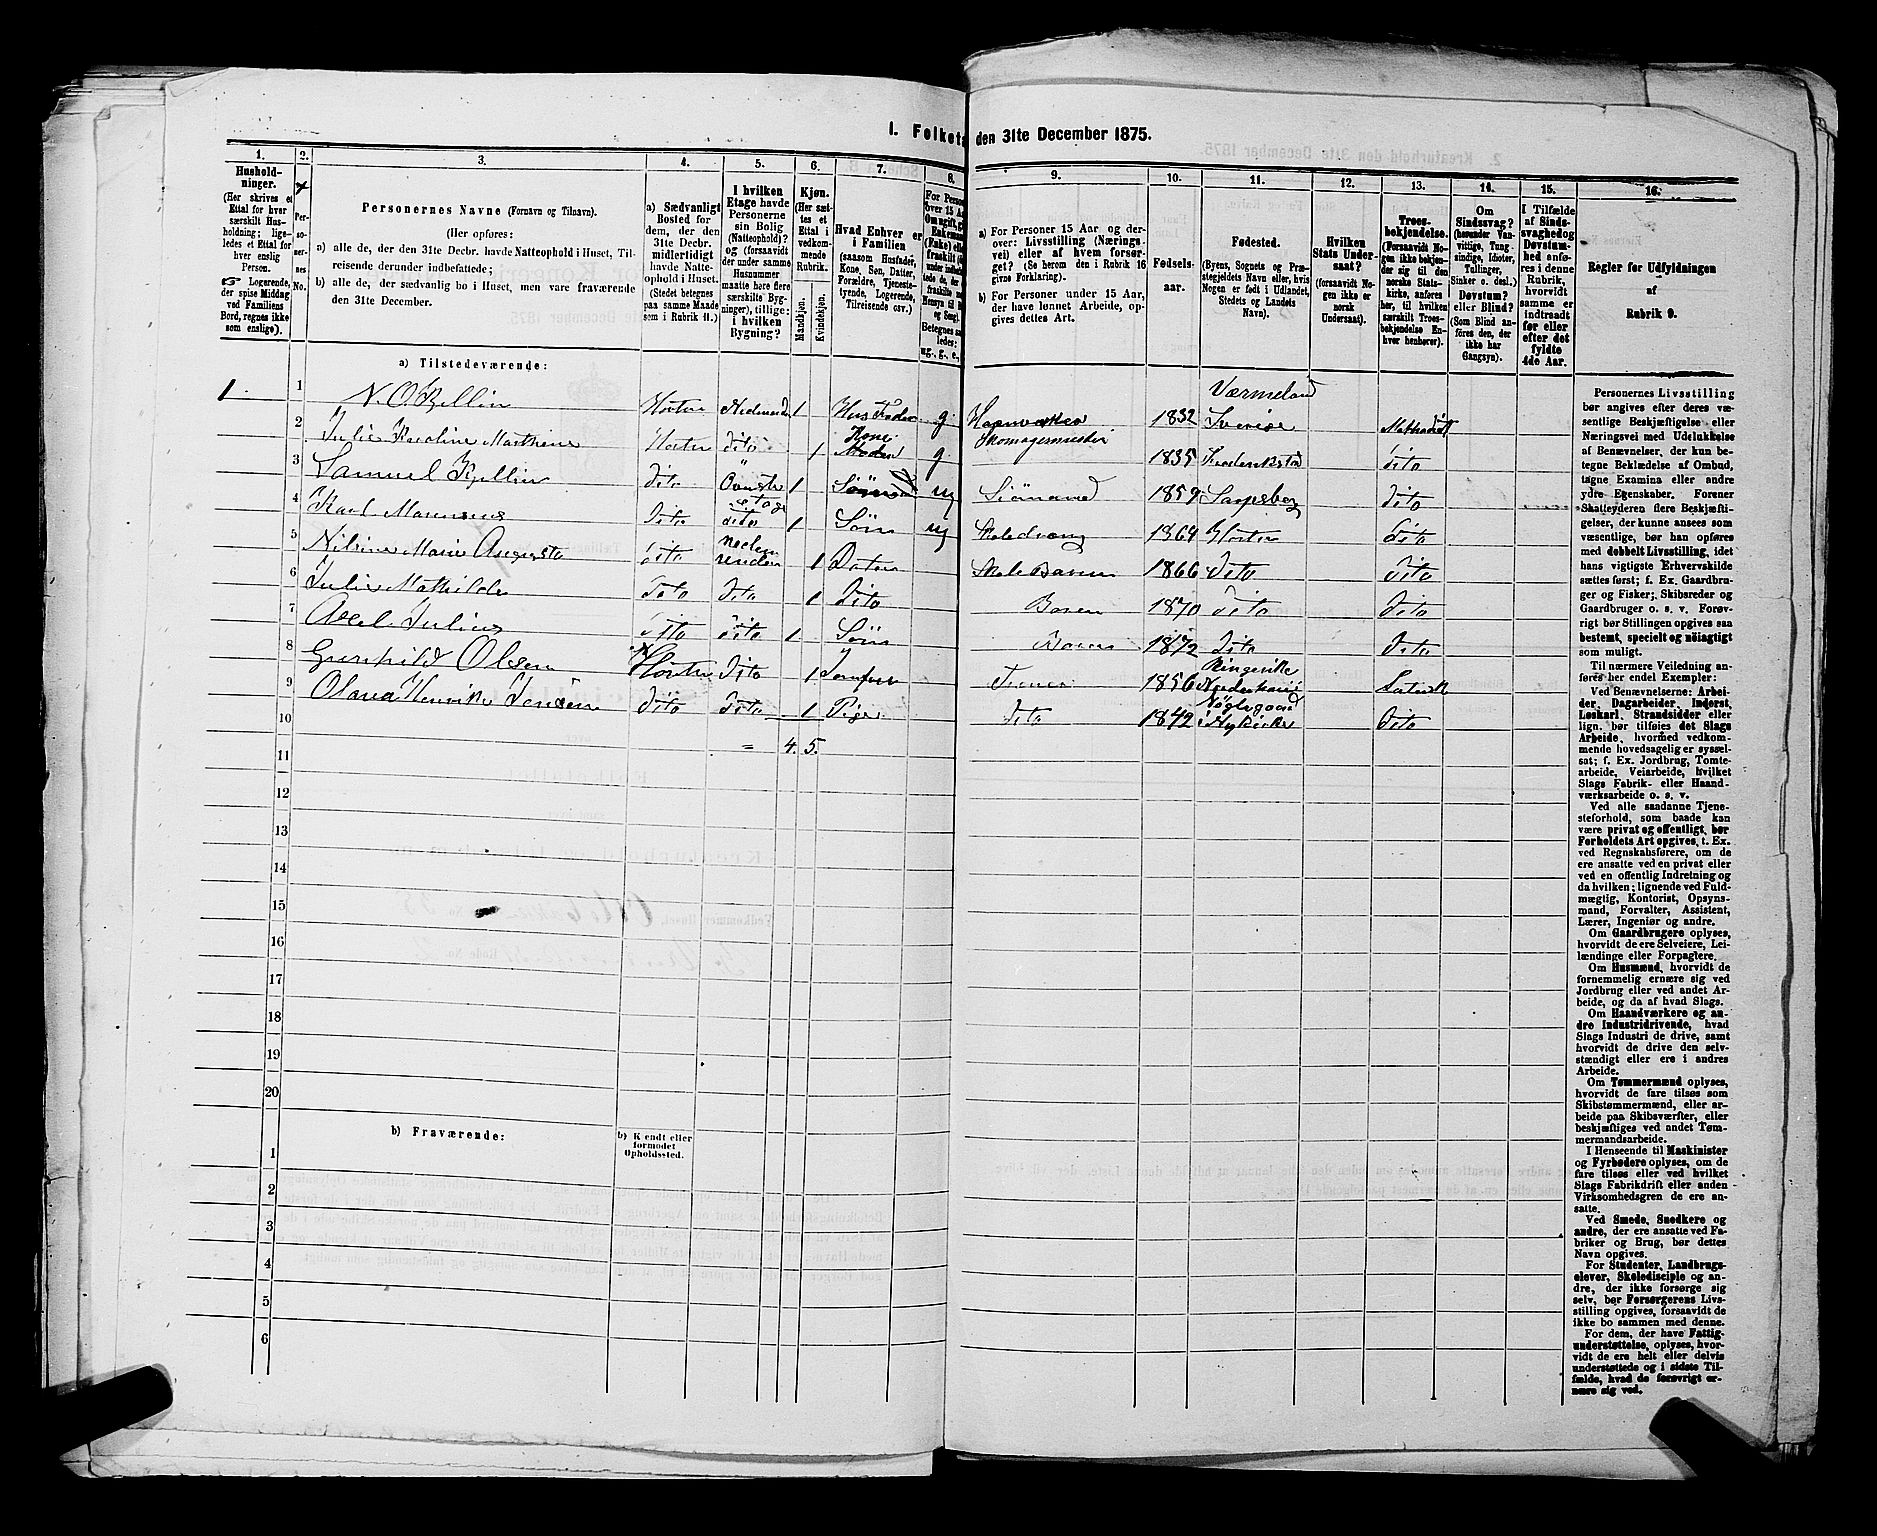 I. Folketæ
den 31te December 1875.
1.
2.
3.
4.
5.
6.
7.
8.
9.
10.
11.
12.
13.
14.
15.
16.
Hushold-
ninger.
(Her skrives et
Ettal for hver
særskilt Hus-
holdning; lige-
ledes et Ettal for
hver enslig
Person.
☞ Logerende,
der spise Middag
ved Familiens
Bord, regnes ikke
som enslige).
Per-
so-
ner-
nes
No.
Personernes Navne (Fornavn og Tilnavn).
(Her opføres:
a) alle de, der den 31te Decbr. havde Natteophold i Huset, Til-
reisende derunder indbefattede;
b) alle de, der sædvanlig bo i Huset, men vare fraværende
den 31te December.
a) Sædvanligt
Bosted for
dem, der den
31te Decbr.
midlertidigt
havde Natte-
ophold i Huset.
(Stedet betegnes
paa samme Maade
som i Rubrik 11.)
I hvilken
Etage havde
Personerne
sin Bolig
(Natteophold)?
og (forsaavidt
der under samme
Husnummer
maatte høre flere
særskilte Byg-
ninger), tillige:
i hvilken
Bygning?
Kjøn.
(Her sæt-
tes et
Ettal i
vedkom-
mende
Rubrik.
Mandkjøn.
Kvindekjøn.
Hvad Enhver er
i Familien
(saasom Husfader,
Kone, Søn, Datter,
Forældre, Tjeneste-
tyende, Logerende,
Tilreisende osv.)
a) For Personer 15 Aar og der-
over: Livsstilling (Nærings-
vei) eller af hvem forsør-
get? (Se herom den i Rubrik 16
givne Forklaring).
b) For Personer under 15 Aar,
der have lønnet Arbeide, op-
gives dettes Art.
Fødsels-
aar.
Fødested.
(Byens, Sognets og Præ-
stegjeldets Navn eller, hvis
Nogen er født i Udlandet,
Stedets og Landets
Navn).
Hvilken
Stats Under-
saat?
(forsaavidt No-
gen ikke er
norsk
Undersaat).
Troes-
bekjendelse.
(Forsaavidt No-
gen ikke bekjen-
der sig til den
norske Stats-
kirke, anføres
her, til hvilken
særskilt Troes-
bekjendelse En-
hver henhører).
Om
Sindssvag?
(herunder Van-
vittige, Tung-
sindige, Idioter,
Tullinger,
Sinker o. desl.)
Døvstum?
eller Blind?
(Som Blind an-
føres den, der
ikke har
Gangsyn).
I Tilfælde
af Sinds-
svaghed og
Døvstum-
hed anfø-
res i denne
Rubrik,
hvorvidt
samme er
indtraadt
før eller
efter det
fyldte
4de Aar.
Regler for Udfyldningen
af
Rubrik 9.
a) Tilstedeværende:
1 1 N. O. Kjellin Horten 1 Hus Fader g 1832 Værmeland Sverige Methodist
2 Julie Karoline Marthine Horten dito 1 Kone g Skomagermester 1835 Frederikstad dito
3 Samuel Kjellin dito 1 ug Siømand 1859 Sarpsborg dito
4 Karl dito Etage dito 1 Søn ug 1864 Horten dito
5 Marie Augusta dito 1 Skole Barn 1866 dito dito
6 Julie Mathilde dito dito 1 dito Barn 1870 dito dito
7 Axel Julius dito dito 1 Søn Barn 1872 dito dito
8 Gunhild Olsen Horten dito 1 1856 Ringerike Luthersk
9 Olava Henrikke Jensen dito dito 1 Pige dito 1842 dito
10 = 4. 5.
11
12
13
14
15
16
17
18
19
20
b) Fraværende:
b) Kjendt eller
formodet
Opholdssted.
1
2
3
4
5
6
Personernes Livsstilling
bør angives efter deres væ-
sentlige Beskjæftigelse eller
Næringsvei med Udelukkelse
af Benævnelser, der kun be-
tegne Beklædelse af Ombud,
tagne Examina eller andre
ydre Egenskaber. Forener
Skatteyderen flere Beskjæfti-
gelser, der kunne ansees som
væsentlige, bør han opføres
med dobbelt Livsstilling, idet
hans vigtigste Erhvervskilde
sættes først; f. Ex. Gaardbru-
ger og Fisker; Skibsreder og
Gaardbruger o. s. v. Forøv-
rigt bør Stillingen opgives saa
bestemt, specielt og nøiagtigt
som muligt.
Til nærmere Veiledning an-
føres her endel Exempler:
Ved Benævnelserne: Arbei-
der, Dagarbeider, Inderst,
Løskarl, Strandsidder eller
lign. bør tilføies det Slags
Arbeide, hvormed vedkom-
mende hovedsagelig er syssel-
sat; f. Ex. Jordbrug, Tomte-
arbeide, Veiarbeide, hvilket
Slags Fabrik- eller Haand-
værksarbeide o. s. v.
Ved alle saadanne Tjene-
steforhold, som baade kan
være privat og offentligt, bør
Forholdets Art opgives, t. Ex.
ved Regnskabsførere, om de
ere ansatte ved en privat eller
ved en offentlig Indretning og
da hvilken; lignende ved Fuld-
mægtig, Kontorist, Opsyns-
mand, Forvalter, Assistent,
Lærer, Ingeniør og andre.
Om Gaardbrugere oplyses,
hvorvidt de ere Selveiere, Lei-
lændinge eller Forpagtere.
Om Husmænd, hvorvidt de
fornemmelig ernære sig ved
Jordbrug eller ved andet Ar-
beide, og da af hvad Slags.
Om Haandværkere og an-
dre Industridrivende, hvad
Slags Industri de drive, samt
hvorvidt de drive den selv-
stændigt eller ere i andres
Arbeide.
Om Tømmermænd oplyses,
hvorvidt de fare tilsøs som
Skibstømmermænd, eller ar-
beide paa Skibsværfter, eller
beskjæftiges ved andet Tøm-
mermandsarbeide.
I Henseende til Maskinister
og Fyrbødere oplyses, om de
fare tilsøs eller ved hvilket
Slags Fabrikdrift eller anden
Virksomhedsgren de ere an-
satte.
Ved Smede, Snedkere og
andre, der ere ansatte ved Fa-
briker og Brug, bør dettes
Navn opgives.
For Studenter, Landbrugs-
elever, Skoledisciple og an-
dre, der ikke forsørge sig
selv, bør Forsørgerens Livs-
stilling opgives, forsaavidt de
ikke bo sammen med denne.
For dem, der have Fattig-
understøttelse, oplyses, hvor-
vidt de ere helt eller delvis
understøttede og i sidste Til-
fælde, hvad de forøvrigt er-
nære sig ved.